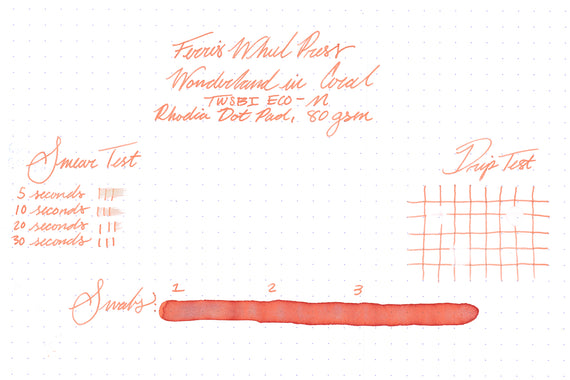 Ferris Wheel Press
Wonderland in Coral
TWSBI ECO - M
Rhodia Dot Pad, 80 gsm
Smear Test
5 seconds
10 seconds
20 seconds
30 seconds
Drip Test
Swabs:
1 2 3